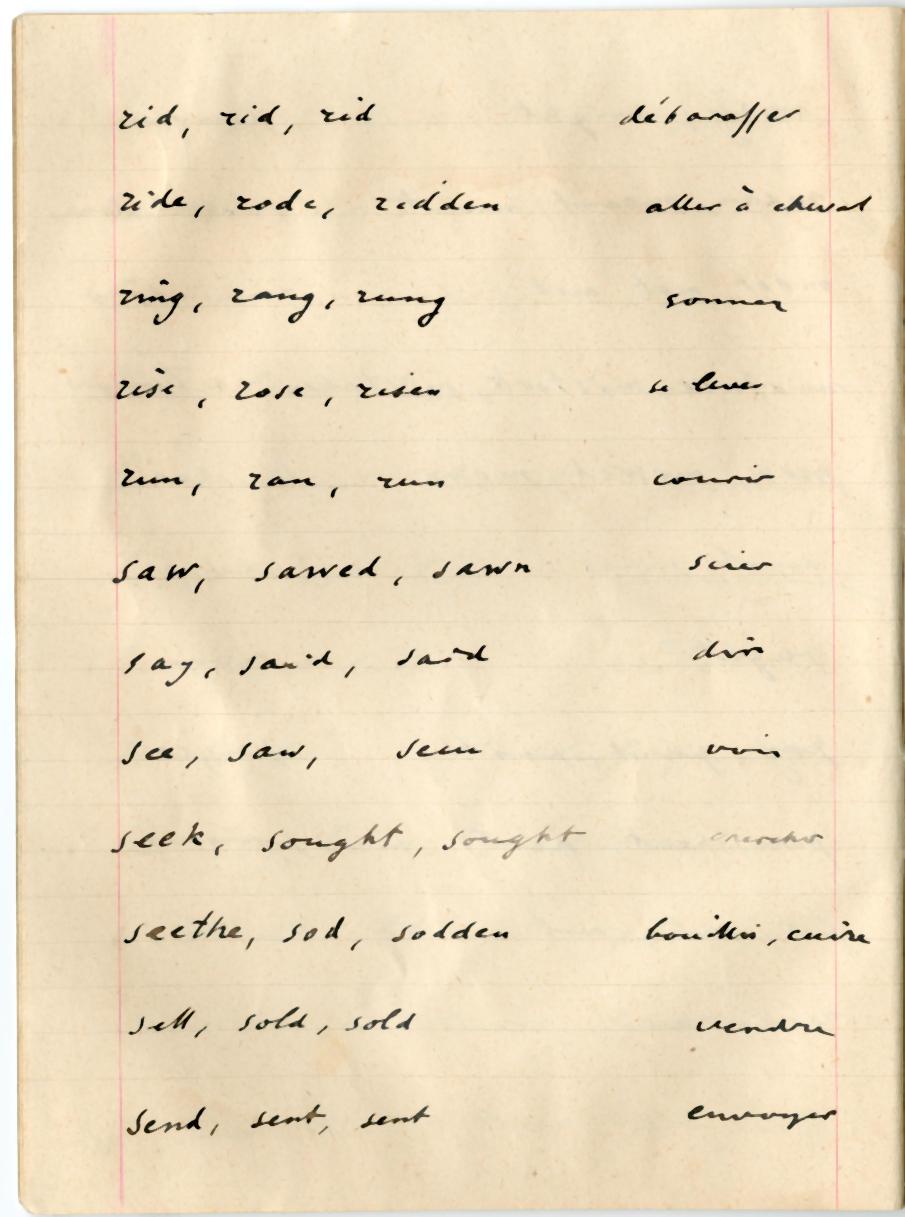 rid, rid, rid débarasser
ride, rode, ridden aller à cheval
ring, rang, rung sonner
rise, rose, risen se lever
run, ran, run courir
saw, sawed, sawn scier
say, said, said dire
see, saw, seen voir
seek, sought, sought chercher
seethe, sod, sodden bouillir, cuire
sell, sold, sold vendre
send, sent, sent envoyer